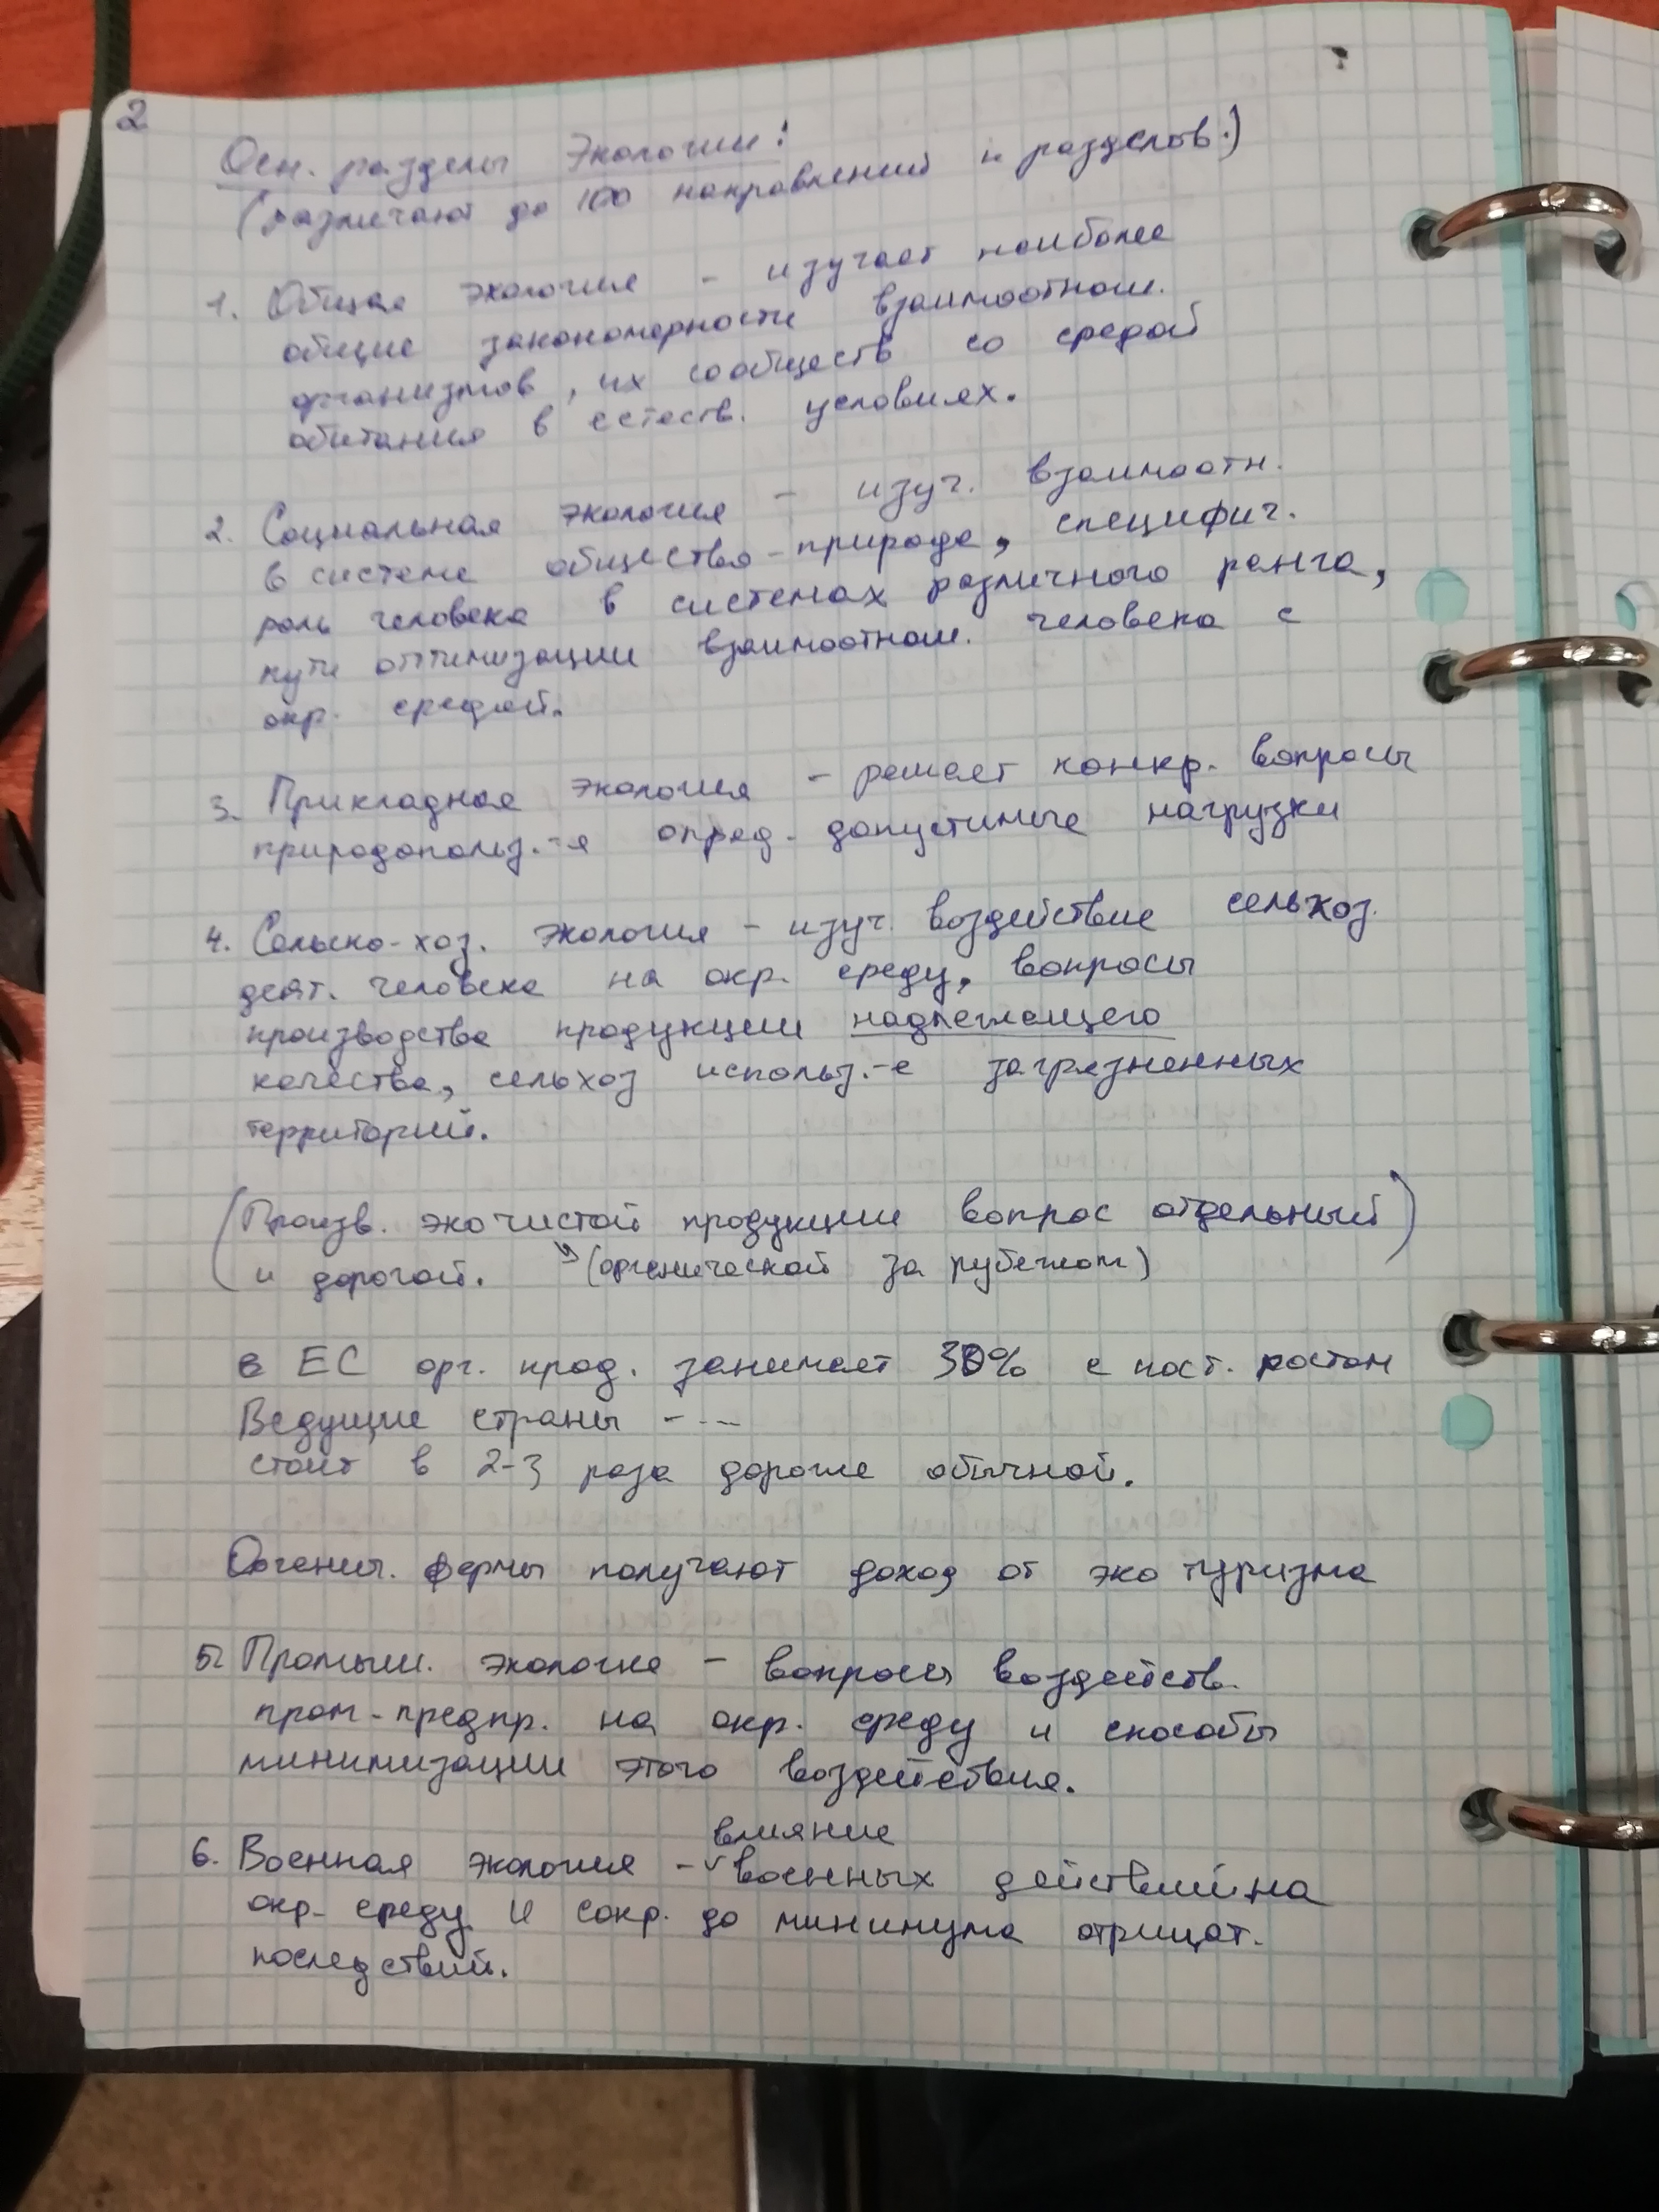 2
Осн. разделы Экологии:
(различают до 100 направлений и разделов.)
1. Общая экология - изучает наиболее
общие закономерности взаимоотнош.
организмов, их сообществ со средой
обитания в естеств. условиях.
2. Социальная экология - изуч. взаимоотн.
в системе общество-природа, специфич.
роль человека в системах различного ранга,
пути оптимизации взаимоотнош. человека с
окр. средой.
3. Прикладная экология - решает конкр. вопросы
природопольз.-я опред. допустимые нагрузки
4. Сельско-хоз. экология - изуч. воздействие сельхоз.
деят. человека на окр. среду, вопросы
производства продукции надлежащего
качества, сельхоз использ.-е загрязненных
территорий.
(Произв. экочистой продукции вопрос отдельный)
и дорогой. (органической за рубежом)
в ЕС орг. прод. занимает 30% с пост. ростом
Ведущие страны - --
стоит в 2-3 раза дороже обычной.
Органич. фермы получают доход от эко туризма
5. Промыш. экология - вопросы воздейств.
пром-предпр. на окр. среду и способы
минимизации этого воздействия.
влияние
6. Военная экология - военных действий на
окр. среду и сокр. до минимума отрицат.
последствий.